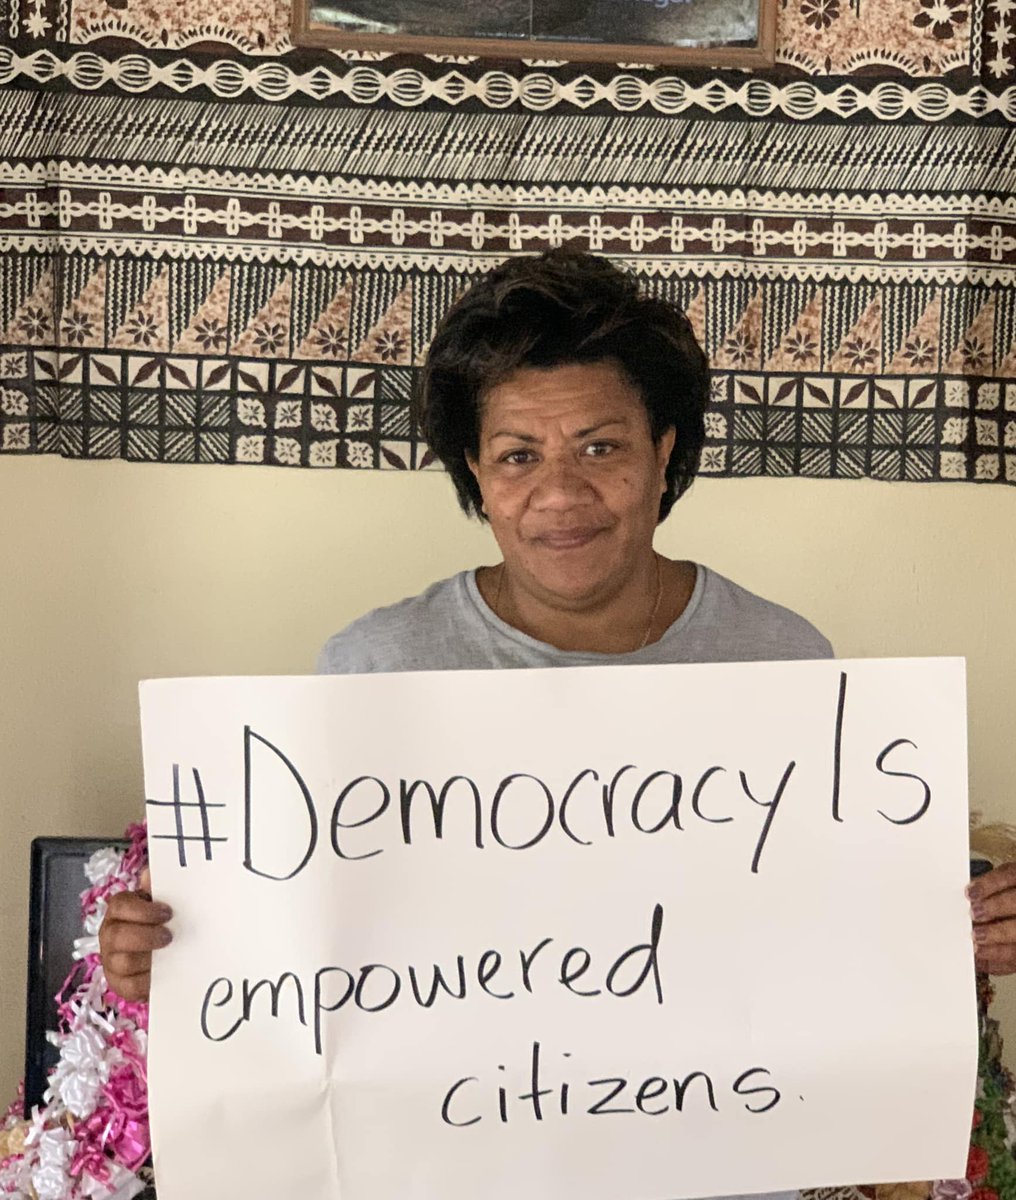 #Democracy Is
empowered
citizens.